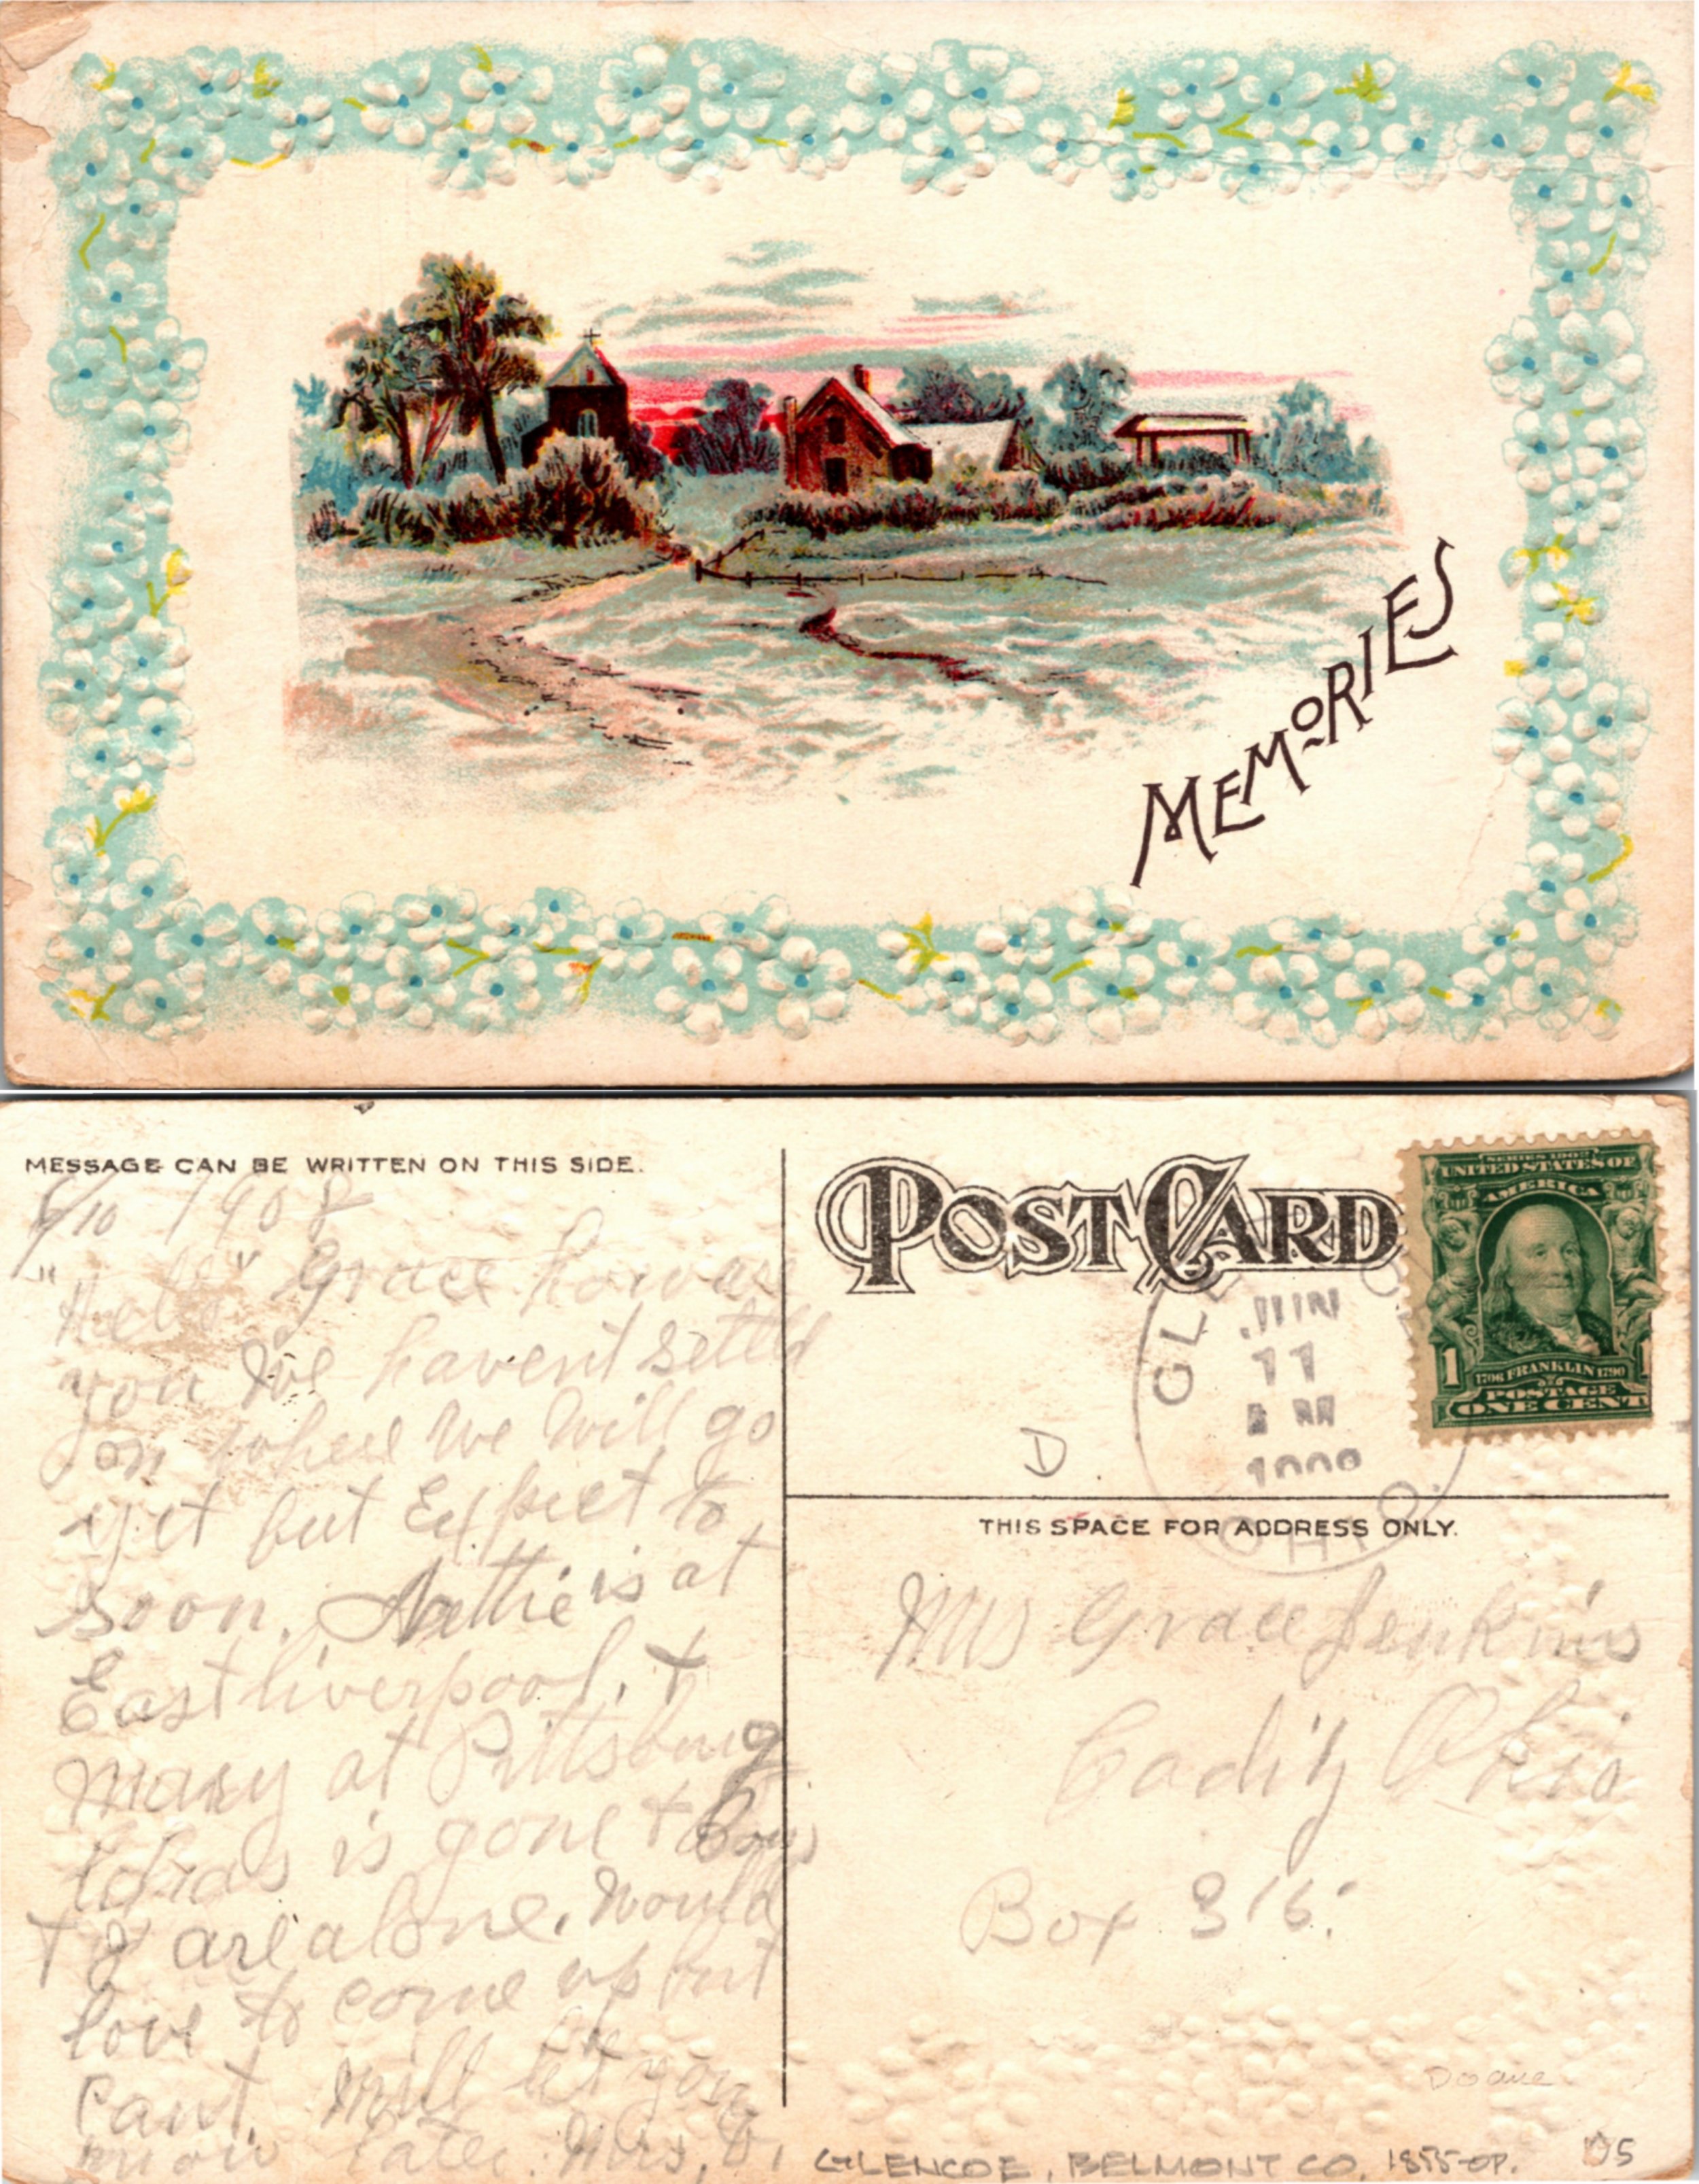 MEMORIES
MESSAGE CAN BE WRITTEN ON THIS SIDE.
6/10 1908
"Hello" Grace how are
you We havent settld
on where we will go
yet but Expect to
soon. Hattie is at
East liverpool. +
mary at Pittsburg
is gone + Boys
+ I are alone. Would
love to come up but
cant. Will let you
know later. Mrs. B.
POST CARD
SERIES 1902
UNITED STATES OF
AMERICA
1706 FRANKLIN 1790
POSTAGE
1 ONE CENT
JUN
11
1908
OHIO.
D
THIS SPACE FOR ADDRESS ONLY.
Mrs Grace Jenkins
Cadiz Ohio
Box 316.
Doane
GLENCOE, BELMONT CO. 1855-OP.